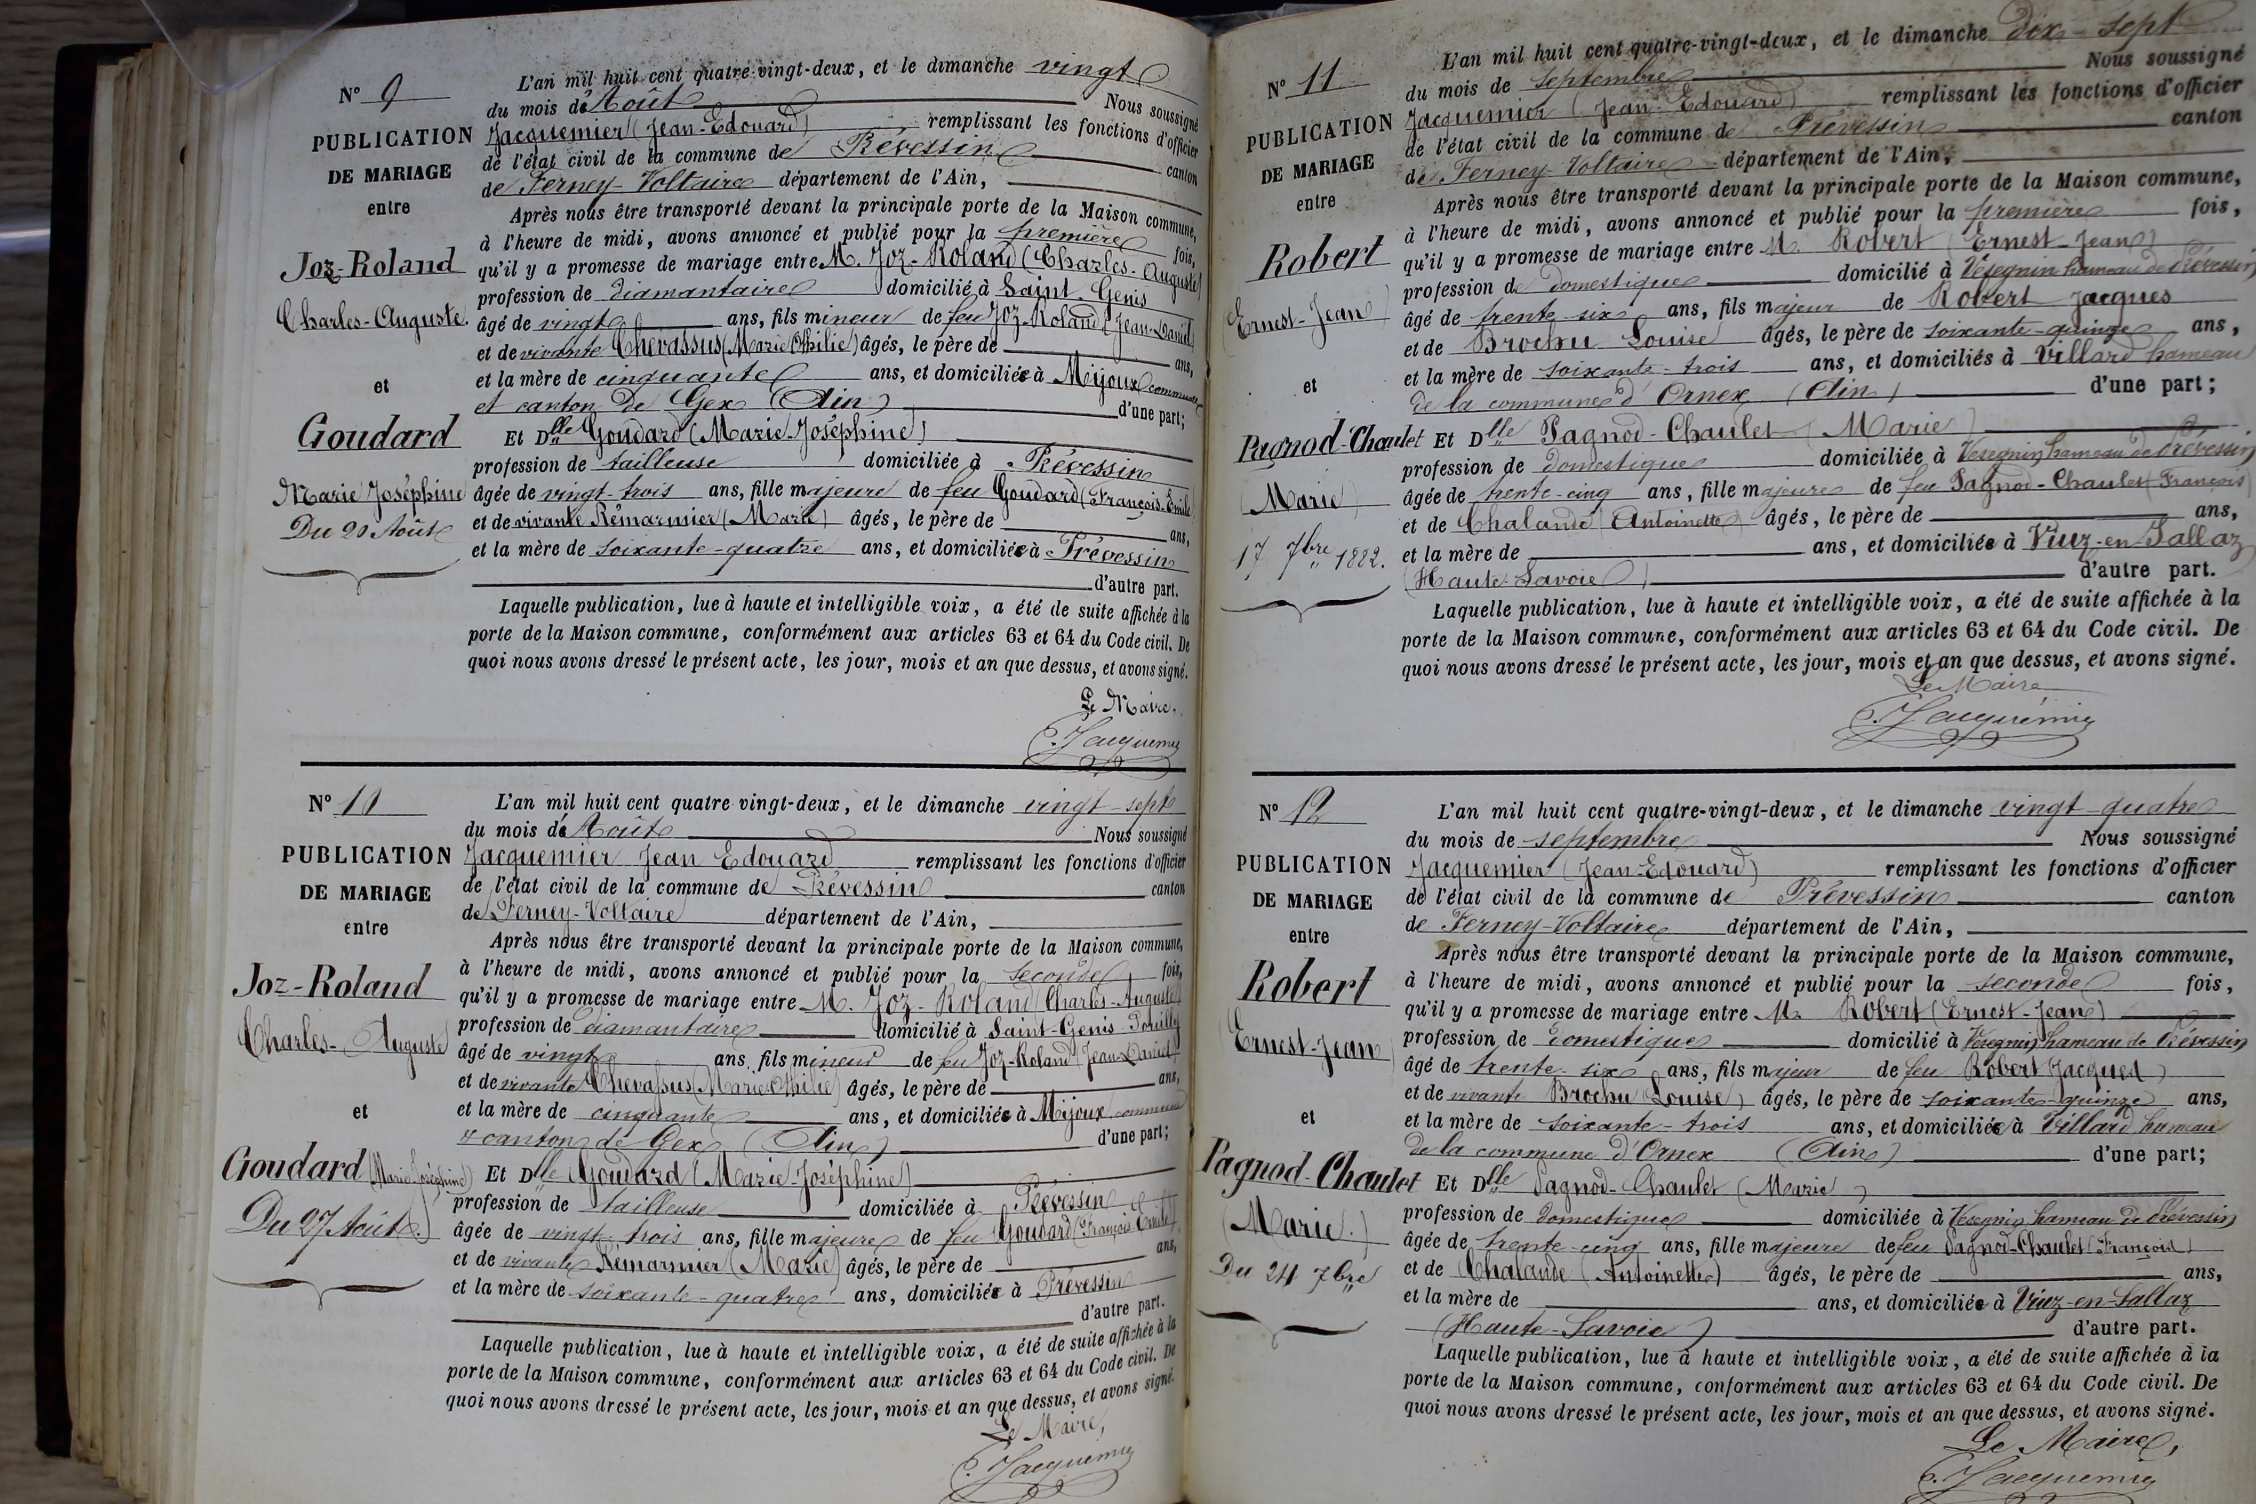 N° 9
PUBLICATION
DE MARIAGE
entre
Joz-Roland
Charles-Auguste.
et
Goudard
Marie Joséphine
Du 20 Août
L'an mil huit cent quatre-vingt-deux, et le dimanche vingt
du mois de Août Nous soussigné
Jacquemier (Jean-Edouard) remplissant les fonctions d'officier
de l'état civil de la commune de Prévessin canton
de Ferney-Voltaire département de l'Ain,
Après nous être transporté devant la principale porte de la Maison commune,
à l'heure de midi, avons annoncé et publié pour la première fois,
qu'il y a promesse de mariage entre M. Joz-Roland (Charles-Auguste)
profession de diamantaire domicilié à Saint-Genis
âgé de vingt ans, fils mineur de feu Joz-Roland (Jean-Daniel)
et de vivante Chevassus (Marie Othilie) âgés, le père de ans,
et la mère de cinquante ans, et domiciliée à Mijoux commune
et canton de Gex (Ain) d'une part;
Et Dlle Goudard (Marie-Joséphine)
profession de tailleuse domiciliée à Prévessin
âgée de vingt-trois ans, fille majeure de feu Goudard (François-Emile)
et de vivante Rémarmier (Marie) âgés, le père de ans,
et la mère de soixante-quatre ans, et domiciliée à Prévessin
d'autre part.
Laquelle publication, lue à haute et intelligible voix, a été de suite affichée à la
porte de la Maison commune, conformément aux articles 63 et 64 du Code civil. De
quoi nous avons dressé le présent acte, les jour, mois et an que dessus, et avons signé.
Le Maire.
E. Jacquemier
N° 10
PUBLICATION
DE MARIAGE
entre
Joz-Roland
Charles-Auguste
et
Goudard (Marie-Joséphine)
Du 27 Août.
L'an mil huit cent quatre-vingt-deux, et le dimanche vingt-sept
du mois de Août Nous soussigné
Jacquemier Jean Edouard remplissant les fonctions d'officier
de l'état civil de la commune de Prévessin canton
de Ferney-Voltaire département de l'Ain,
Après nous être transporté devant la principale porte de la Maison commune,
à l'heure de midi, avons annoncé et publié pour la seconde fois,
qu'il y a promesse de mariage entre M. Joz-Roland (Charles-Auguste)
profession de diamantaire domicilié à Saint-Genis-Pouilly
âgé de vingt ans, fils mineur de feu Joz-Roland (Jean-Daniel)
et de vivante Chevassus (Marie Othilie) âgés, le père de ans,
et la mère de cinquante ans, et domiciliée à Mijoux commune
& canton de Gex (Ain) d'une part;
Et Dlle Goudard (Marie-Joséphine)
profession de tailleuse domiciliée à Prévessin
âgée de vingt-trois ans, fille majeure de feu Goudard (François Emile)
et de vivante Rémarmier (Marie) âgés, le père de ans,
et la mère de soixante-quatre ans, domiciliée à Prévessin
d'autre part.
Laquelle publication, lue à haute et intelligible voix, a été de suite affichée à la
porte de la Maison commune, conformément aux articles 63 et 64 du Code civil. De
quoi nous avons dressé le présent acte, les jour, mois et an que dessus, et avons signé.
Le Maire,
E. Jacquemier
N° 11
PUBLICATION
DE MARIAGE
entre
Robert
(Ernest-Jean)
et
Pagnod-Chaulet
(Marie)
17 7bre 1882.
L'an mil huit cent quatre-vingt-deux, et le dimanche dix-sept
du mois de septembre Nous soussigné
Jacquemier (Jean-Edouard) remplissant les fonctions d'officier
de l'état civil de la commune de Prévessin canton
de Ferney-Voltaire département de l'Ain,
Après nous être transporté devant la principale porte de la Maison commune,
à l'heure de midi, avons annoncé et publié pour la première fois,
qu'il y a promesse de mariage entre M. Robert (Ernest-Jean)
profession de domestique domicilié à Vésegnin hameau de Prévessin
âgé de trente-six ans, fils majeur de Robert Jacques
et de Brochu Louise âgés, le père de soixante-quinze ans,
et la mère de soixante-trois ans, et domiciliés à Villard hameau
de la commune d'Ornex (Ain) d'une part;
Et Dlle Pagnod-Chaulet (Marie)
profession de domestique domiciliée à Vesegnin hameau de Prévessin
âgée de trente-cinq ans, fille majeure de feu Pagnod-Chaulet (François)
et de Chalande (Antoinette) âgés, le père de ans,
et la mère de ans, et domiciliée à Viuz-en-Sallaz
(Haute-Savoie) d'autre part.
Laquelle publication, lue à haute et intelligible voix, a été de suite affichée à la
porte de la Maison commune, conformément aux articles 63 et 64 du Code civil. De
quoi nous avons dressé le présent acte, les jour, mois et an que dessus, et avons signé.
Le Maire
E. Jacquemier
N° 12
PUBLICATION
DE MARIAGE
entre
Robert
(Ernest-Jean)
et
Pagnod-Chaulet
(Marie.)
Du 24 7bre
L'an mil huit cent quatre-vingt-deux, et le dimanche vingt-quatre
du mois de septembre Nous soussigné
Jacquemier (Jean-Edouard) remplissant les fonctions d'officier
de l'état civil de la commune de Prévessin canton
de Ferney-Voltaire département de l'Ain,
Après nous être transporté devant la principale porte de la Maison commune,
à l'heure de midi, avons annoncé et publié pour la seconde fois,
qu'il y a promesse de mariage entre Mr Robert (Ernest-Jean)
profession de domestique domicilié à Vesegnin hameau de Prévessin
âgé de trente-six ans, fils majeur de feu Robert Jacques)
et de vivante Brochu (Louise) âgés, le père de soixante-quinze ans,
et la mère de soixante-trois ans, et domiciliée à Villard hameau
de la commune d'Ornex (Ain) d'une part;
Et Dlle Pagnod-Chaulet (Marie)
profession de domestique domiciliée à Vesegnin hameau de Prévessin
âgée de trente-cinq ans, fille majeure de feu Pagnod-Chaulet (François)
et de Chalande (Antoinette) âgés, le père de ans,
et la mère de ans, et domiciliée à Viuz-en-Sallaz
(Haute-Savoie) d'autre part.
Laquelle publication, lue à haute et intelligible voix, a été de suite affichée à la
porte de la Maison commune, conformément aux articles 63 et 64 du Code civil. De
quoi nous avons dressé le présent acte, les jour, mois et an que dessus, et avons signé.
Le Maire,
E. Jacquemier